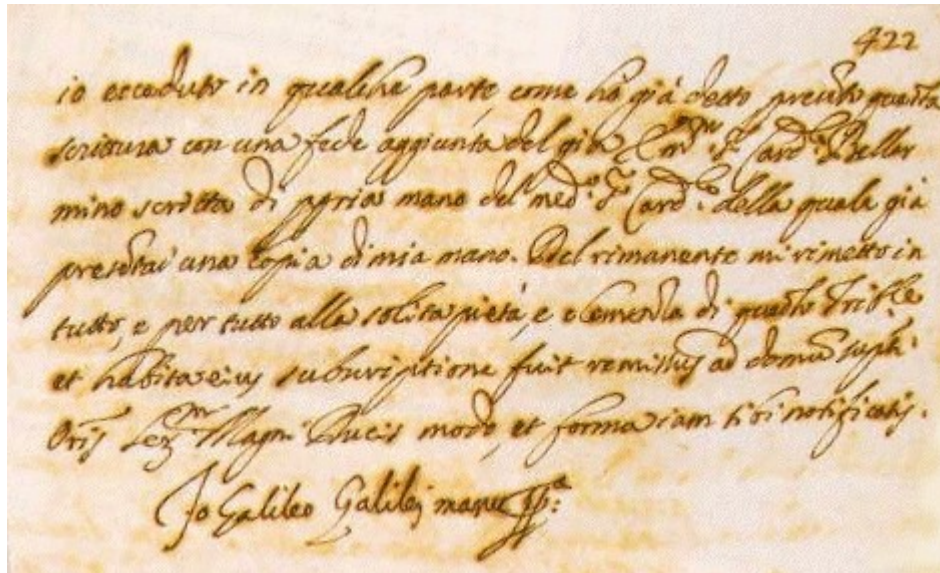 422
io ecceduto in qualche parte, come hò già detto presẽto questa
scrittura con una fede aggiunta del già Em.mo S.r Card.le Bellar
mino scritta di ppria mano del med.o S.r Card.le della quale già
presẽtai una copia di mia mano. Del rimanente mi rimetto in
tutto, e per tutto alla solita pietà, e clemenza di questo Trib.le
et habita eius subscriptione fuit remissus ad domũ
Oris Ser.mi Magni Ducis modo, et forma iam sibi notificatis.
Io Galileo Galilei manu pp.a